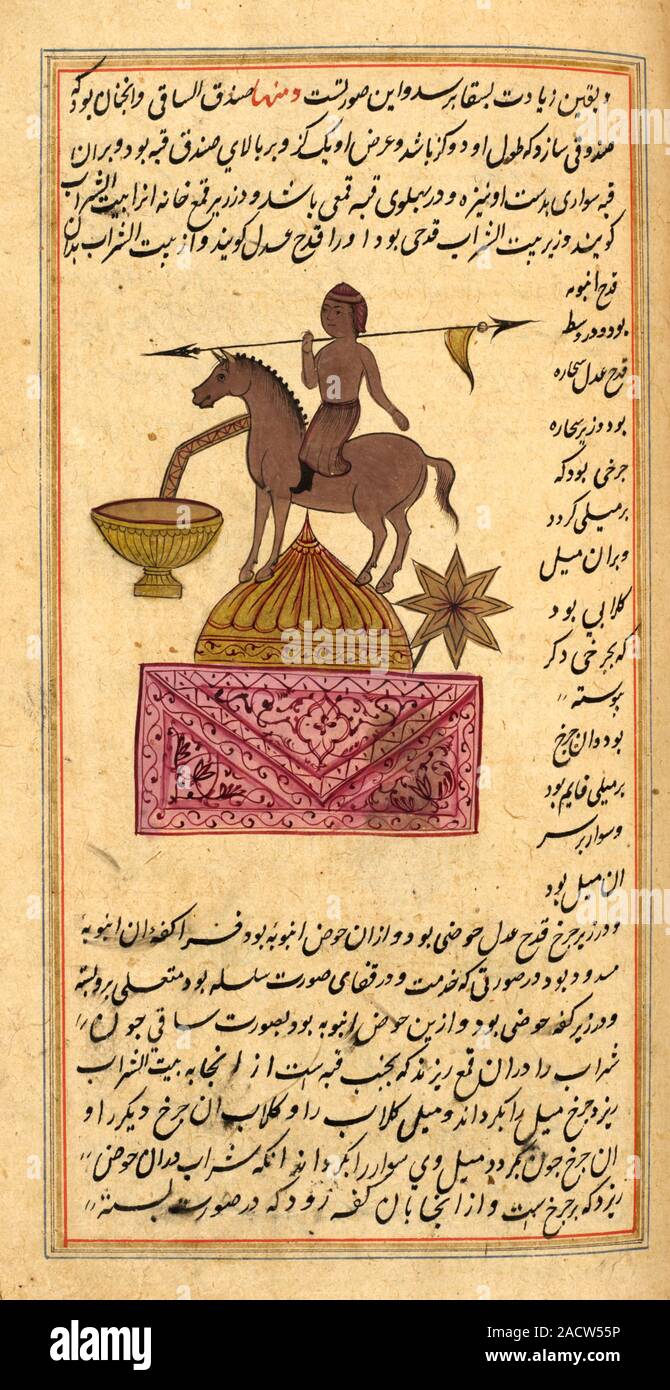 و بقین زیادت بسقا برسد و این صورتست و منها صندق الساقی و انجنان بود که
صندوقی سازد که طول او دو کز باشد و عرض او یک کز و بر بالای صندق قبه بود و بران
قبه سواری بدست او نیزه و در پهلوی قبه قمعی باشد و در زیر قمع خانه انرا بیت الشراب
کویند و زیر بیت الشراب قدحی بود او را قدح عدل کویند و از بیت الشراب بدان
قدح انبوبه
بود و در وسط
قدح عدل سحاره
بود و زیر سحاره
جرخی بود که
بر میلی کردد
و بران میل
کلابی بود
که بجرخی دکر
پیوسته
بود و ان جرخ
بر میلی قایم بود
و سوار بر سر
ان میل بود
و در زیر جرخ قدح عدل حوضی بود و از ان حوض انبوبه بود فرا کفه ان انبوبهٔ
مسدود بود در صورتی که خدمت و در قفای صورت سلسله بود متعلی بر و بسته
و در زیر کفه حوضی بود و ازین حوض انبوبه بود بصورت ساقی جون
شراب را دران قمع ریزند که بجنب قبه است از انجا به بیت الشراب
ریزد جرخ میل را بکرداند و میل کلاب را و کلاب ان جرخ دیکر را و
ان جرخ جون بکردد میل وی سوار را بکرداند انکه شراب دران حوض
ریزد که بر جرخ است و از انجا بان کفه رود که در صورت بسته
alamy
Image ID: 2ACW55P
www.alamy.com